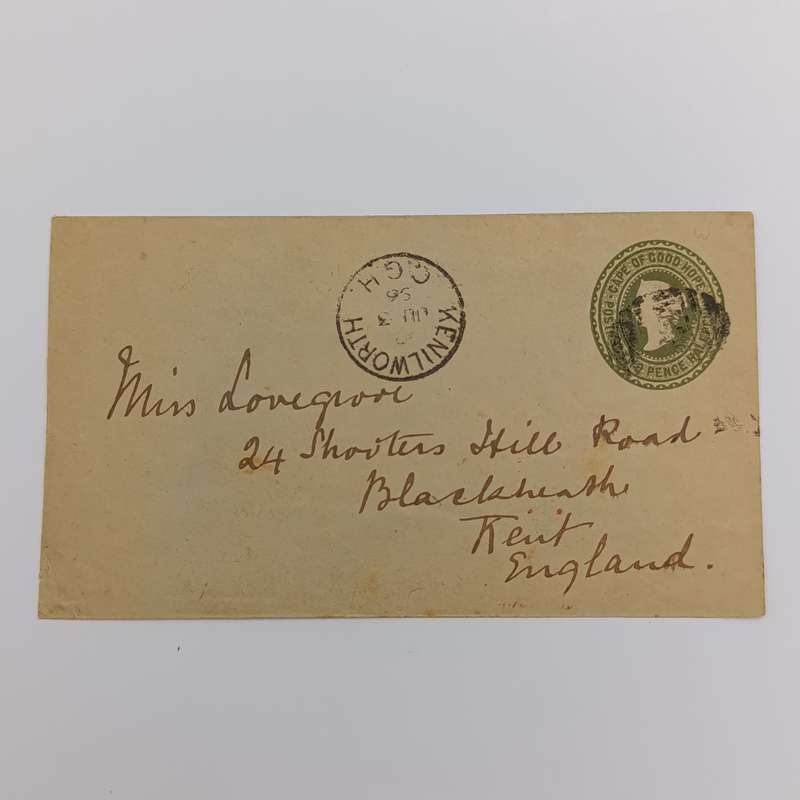 CAPE OF GOOD HOPE
POST
PENCE HALF
KENILWORTH
C.G.H
JU 3
96
Miss Lovegrove
24 Shooters Hill Road
Blackheath
Kent
England.